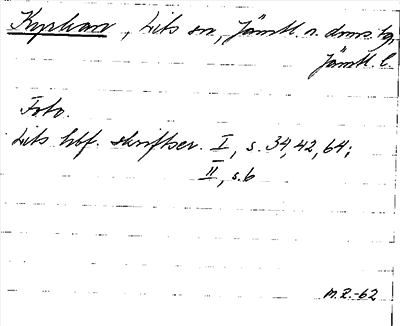 Kyrkan, Lits sn, Jämtl. n. doms. tg,
Jämtl. l.
Foto.
Lits hbf. skriftser. I, s. 34, 42, 64;
II, s. 6
M.Z.-62